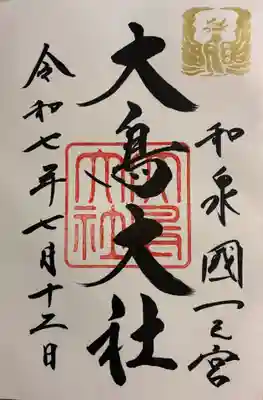 和泉國一之宮
大鳥大社
令和七年七月十二日